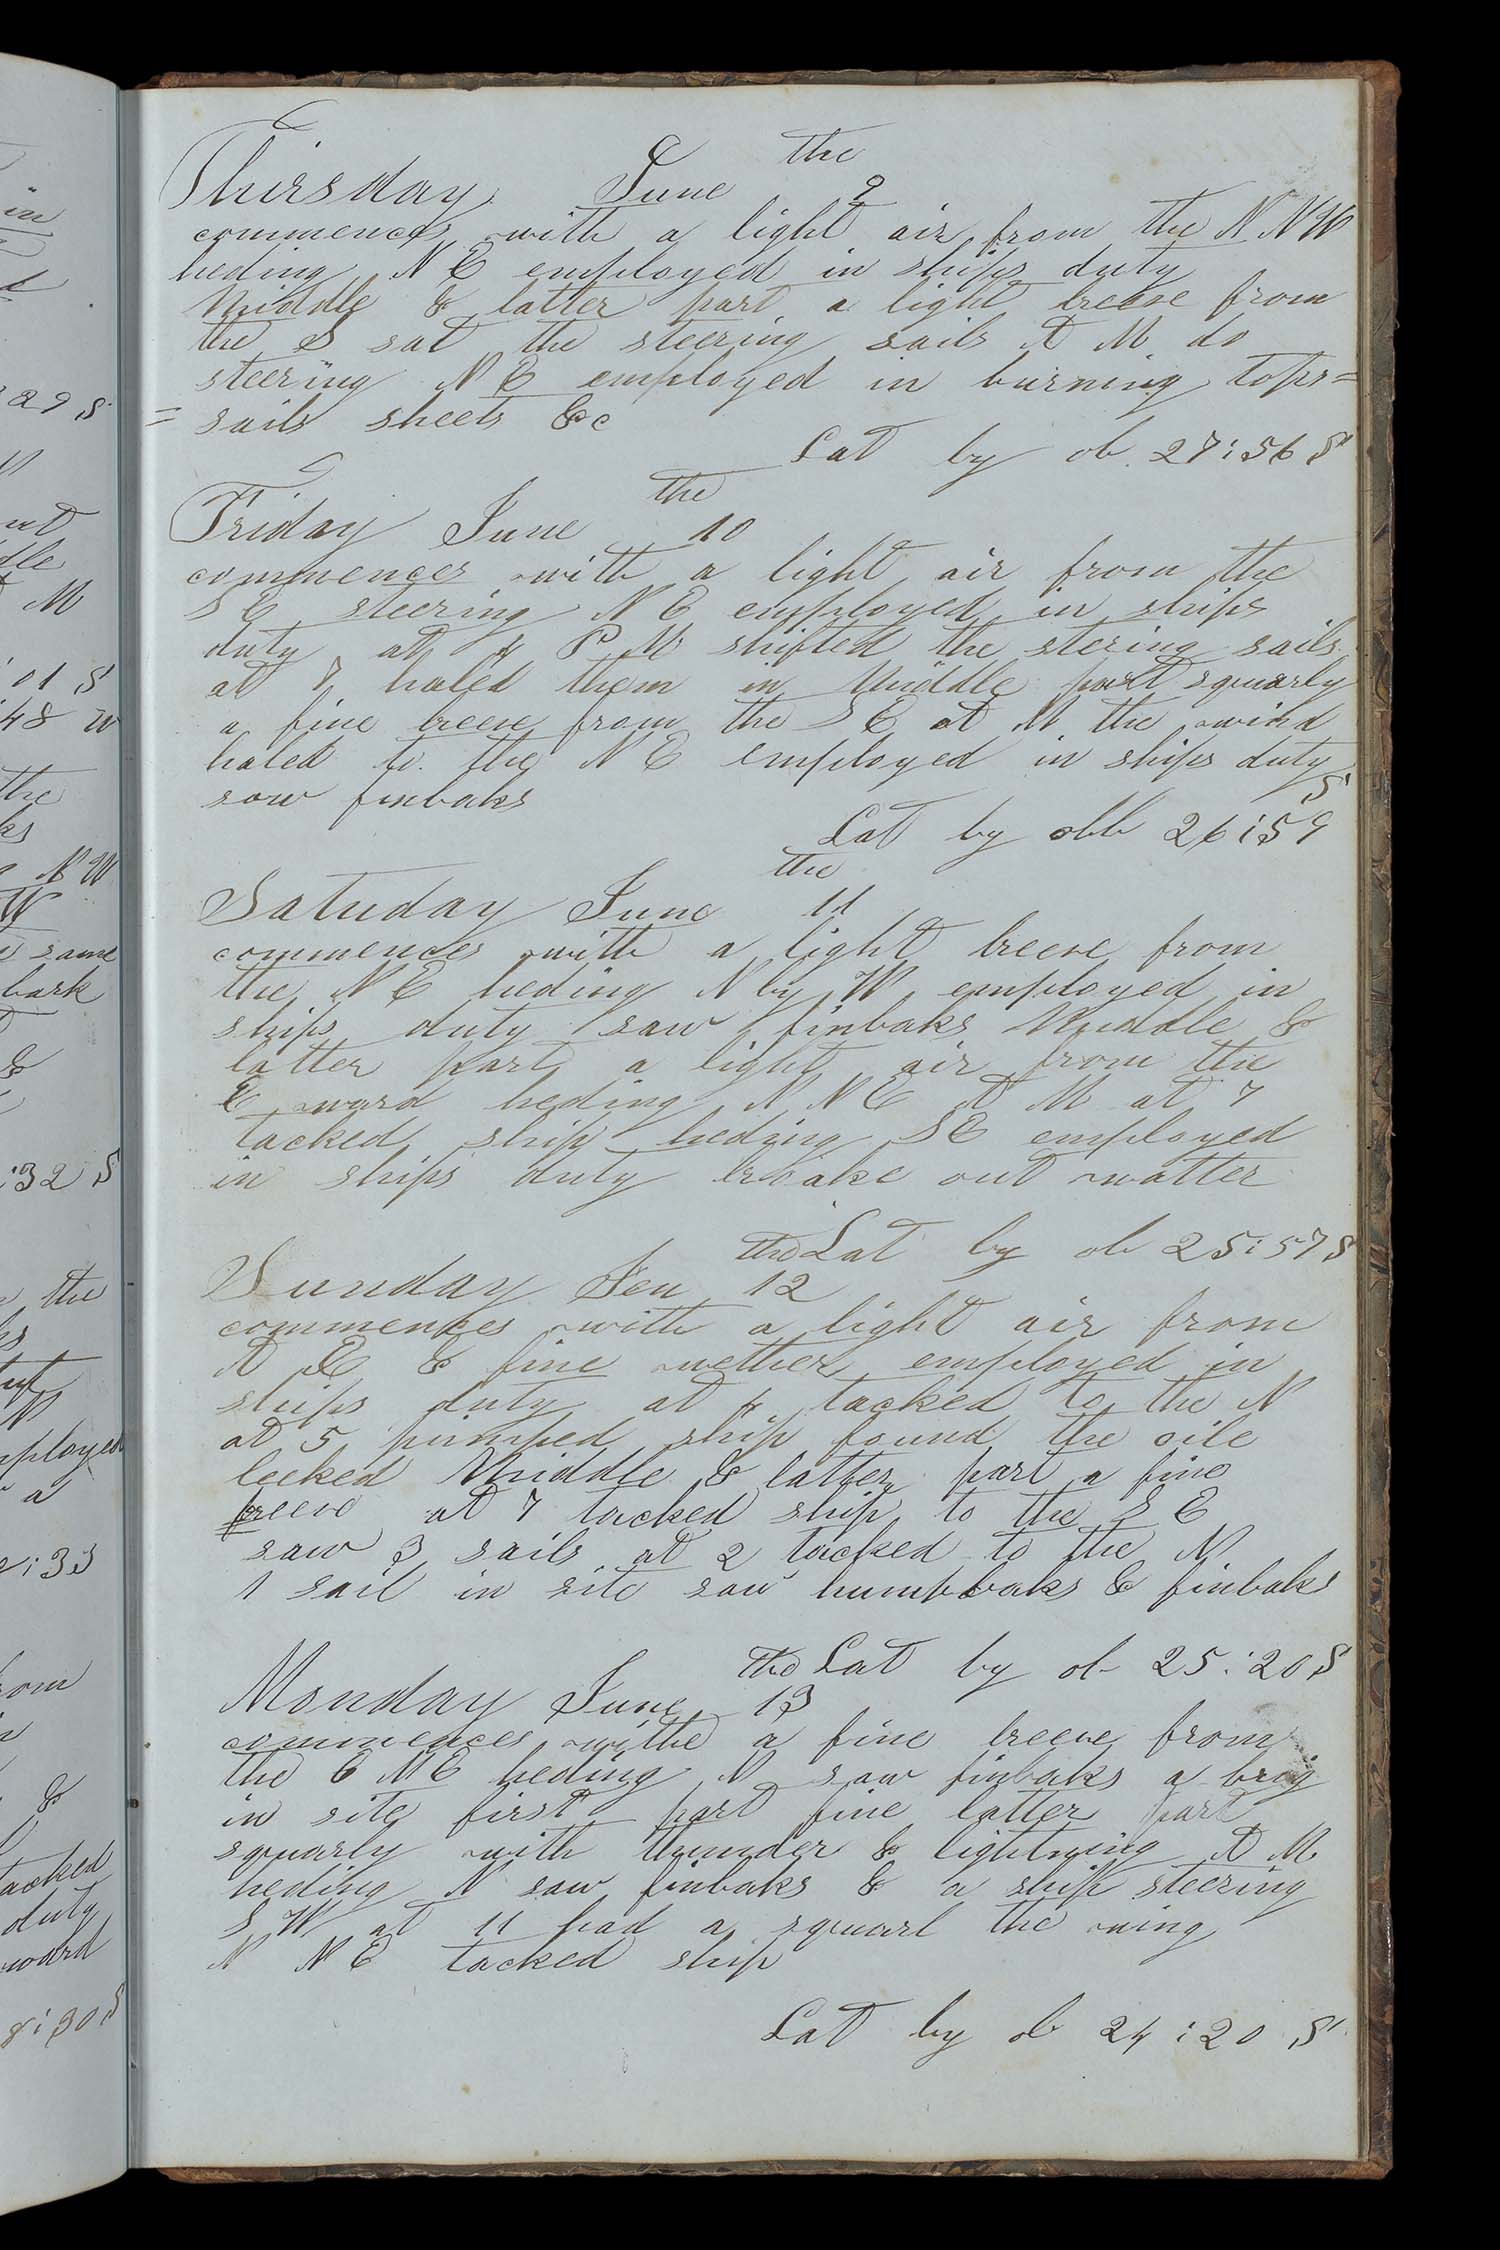 in
29 S
M
out
dle
M
01 S
48 W
the
ks
NW
W
same
bark
&
:32 S
the
N
mployed
a
:33
from
in
&
tacked
duty
ward
8:30 S
the
Thirsday June 9
commences with a light air from the N N W
heding N E employed in ships duty
Middle & latter part a light breese from
the S sat the steering sails A M do
steering N E employed in burning tops=
= sails sheets &c
Lat by ob 27:56 S
the
Friday June 10
commences with a light air from the
S E steering N E employed in ships
duty at 4 P M shifted the stering sails
at 7 haled them in Middle part squarly
a fine breese from the S E at M the wind
haled to the N E employed in ships duty
sow finbaks
S
Lat by obb 26:59
the
Satuday June 11
commences with a light breese from
the N E heding N by W employed in
ships duty saw finbaks Middle &
latter part a light air from the
E ward heding N N E A M at 7
tacked ship heding S E employed
in ships duty broake out watter
Lat by ob 25:57 S
the
Sunday Jeu 12
commences with a light air from
N E & fine wether employed in
ships duty at 4 tacked to the N
at 5 pumped ship found the oile
leeked Middle & latter part a fine
breese at 7 tacked ship to the S E
saw 3 sails at 2 tacked to the N
1 sail in site saw humpbaks & finbaks
Lat by ob 25:20 S
the
Monday June 13
commences withe a fine breese from
the E N E heding N saw finbaks a brig
in site first part fine latter part
squarly with thunder & lightning A M
heding N saw finbaks & a ship steering
S W at 11 had a squarl the wing
N N E tacked ship
Lat by ob 24:20 S